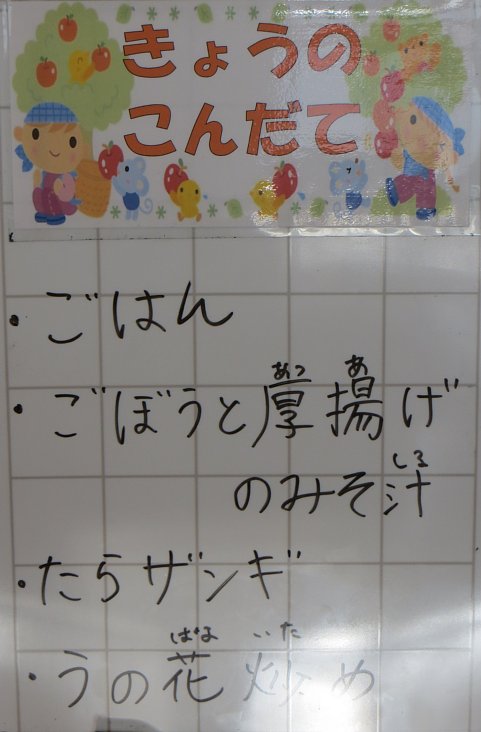 きょうの
こんだて
・ごはん
・ごぼうと厚揚げ
のみそ汁
・たらザンギ
・うの花炒め